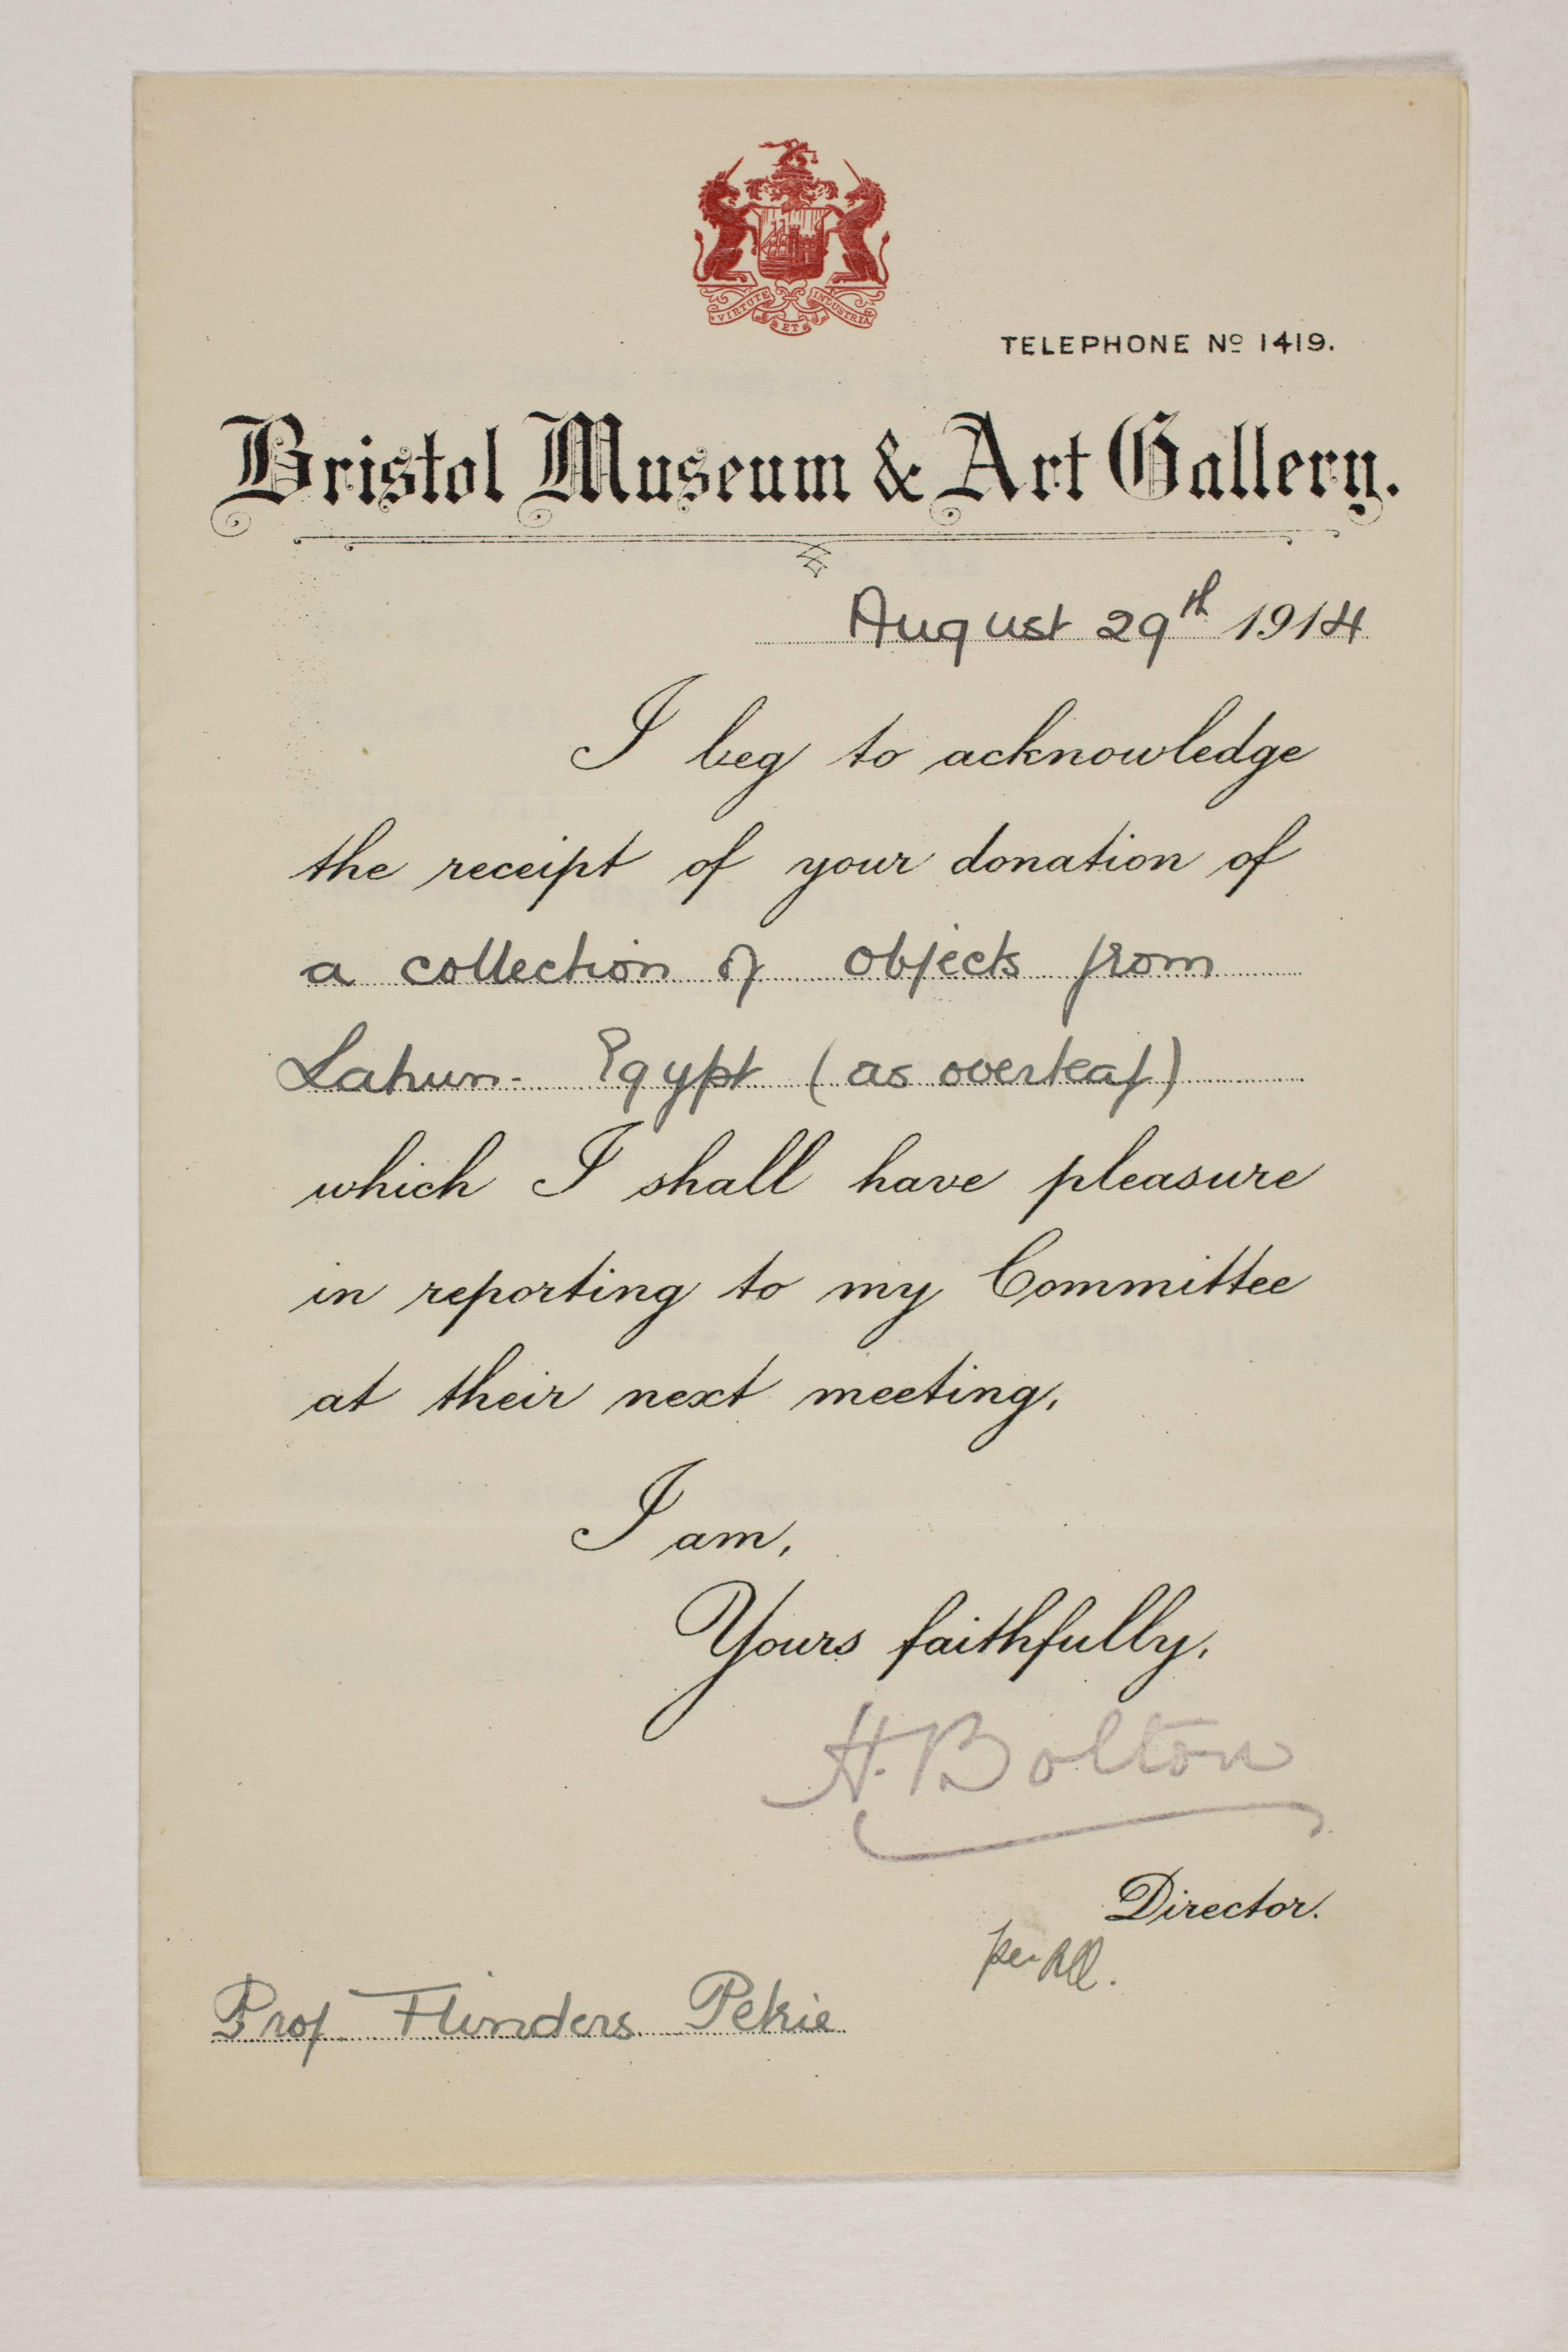 VIRTUTE ET INDUSTRIA
TELEPHONE No 1419.
Bristol Museum & Art Gallery.
August 29th 1914
I beg to acknowledge
the receipt of your donation of
a collection of objects from
Lahun - Egypt (as overleaf)
which I shall have pleasure
in reporting to my Committee
at their next meeting.
I am,
Yours faithfully,
H. Bolton
Director.
per
Prof Flinders Petrie